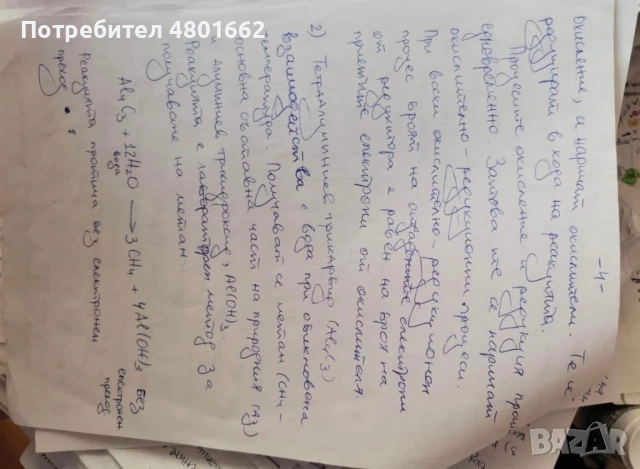 Потребител 4801662
-4-
окисление, и наричат окислители. Те се
редуцират в хода на реакцията.
Процесите окисление и редукция протичат
едновременно. Затова те се наричат
окислително-редукционни процеси.
При всеки окислително-редукционен
процес броят на отдадените електрони
от редуктора е равен на броя на
приетите електрони от окислителя.
2) Тетраалуминиев трикарбид (Al4C3)
взаимодейства с вода при обикновена
температура. Получават се метан (CH4 -
основна съставна част на природния газ)
и алуминиев трихидроксид, Al(OH)3.
Реакцията е лабораторен метод за
получаване на метан.
Al4C3 + 12H2O → 3CH4 + 4Al(OH)3 без
вода електронен
преход
Реакцията протича без електронен
преход.
bazar